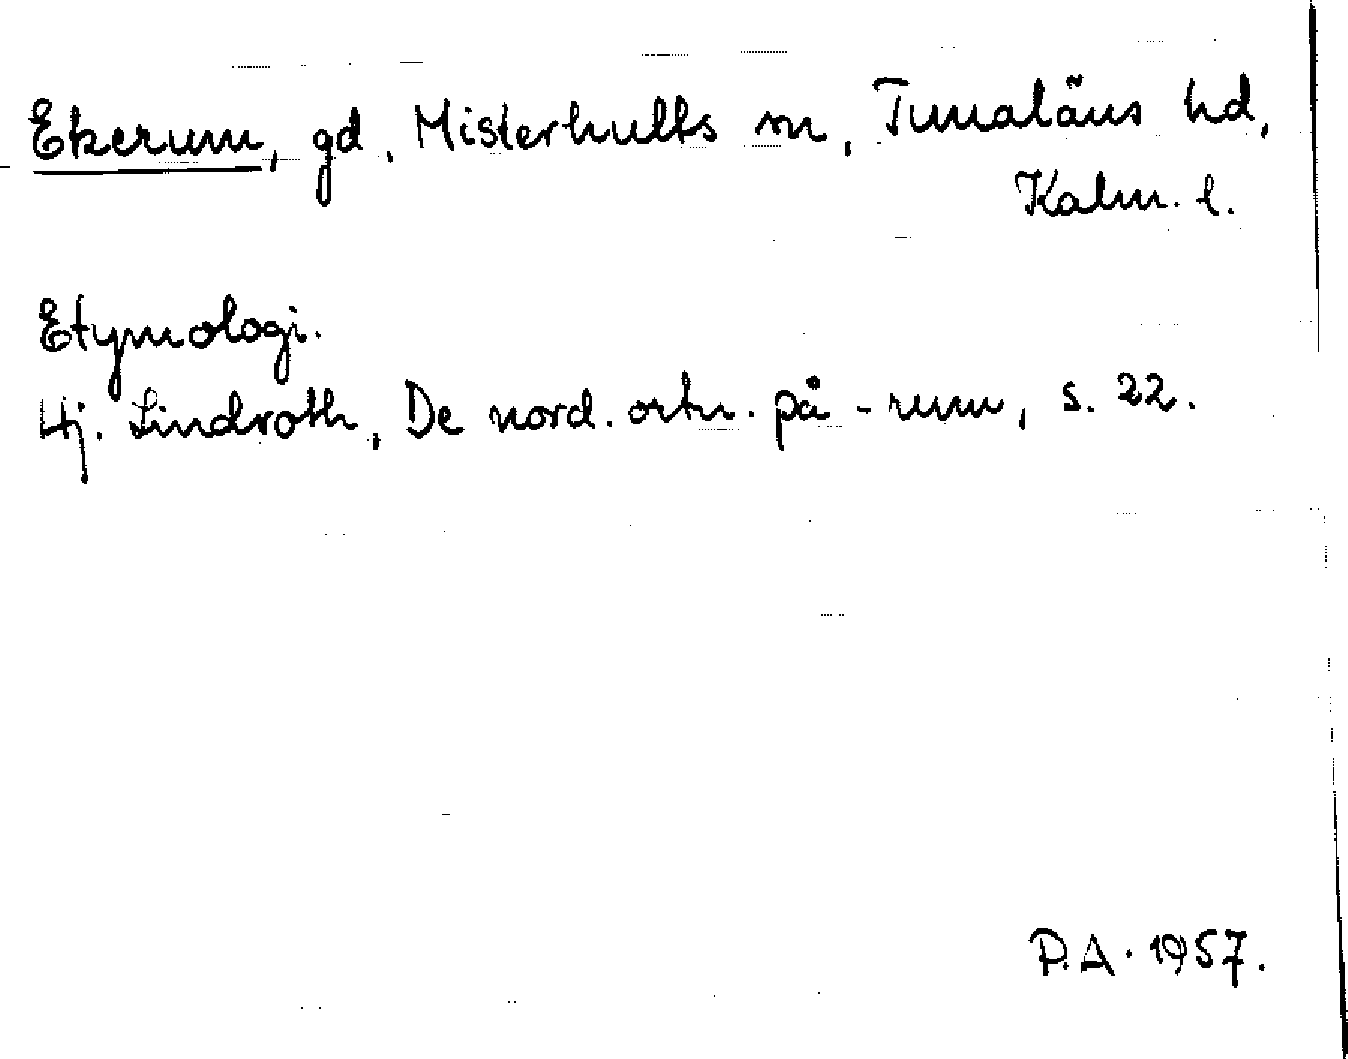 Ekerum, gd, Misterhults sn, Tunaläns hd,
Kalm. l.
Etymologi.
Hj. Lindroth, De nord. ortn. på -rum, s. 22.
P.A. 1957.